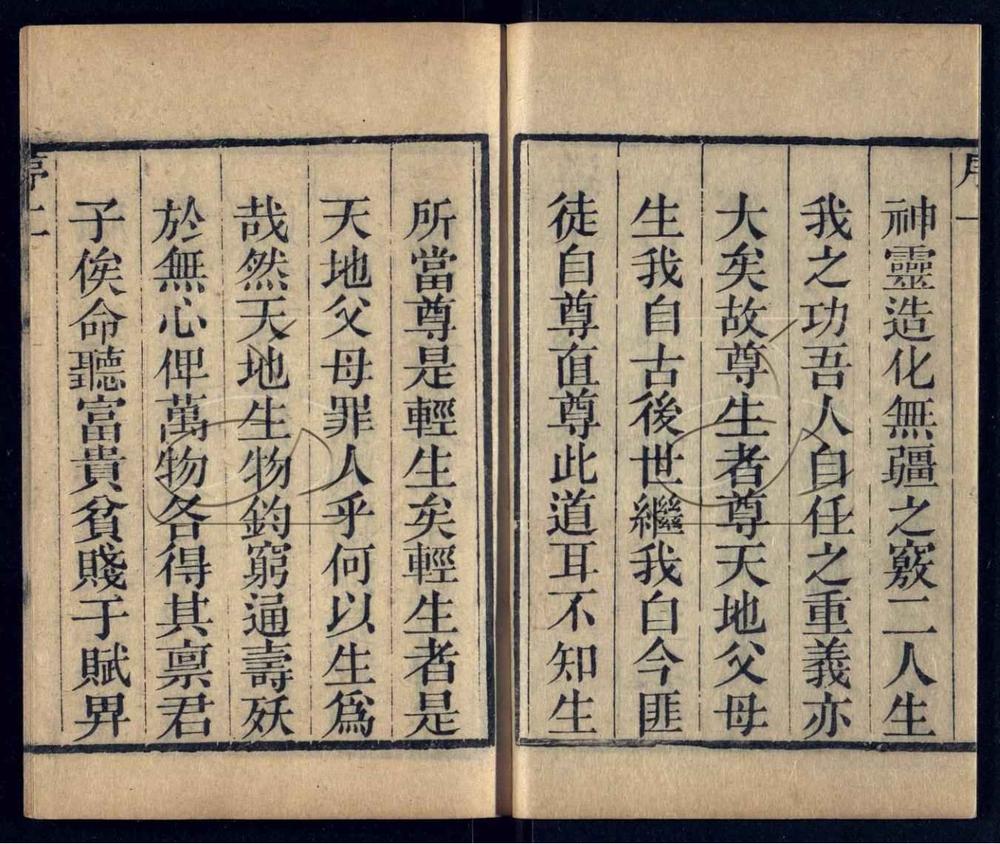 序一
神靈造化無疆之竅二人生
我之功吾人自任之重義亦
大矣故尊生者尊天地父母
生我自古後世繼我自今匪
徒自尊直尊此道耳不知生
所當尊是輕生矣輕生者是
天地父母罪人乎何以生爲
哉然天地生物鈞窮通壽殀
於無心俾萬物各得其禀君
子俟命聽富貴貧賤于賦畀
序二